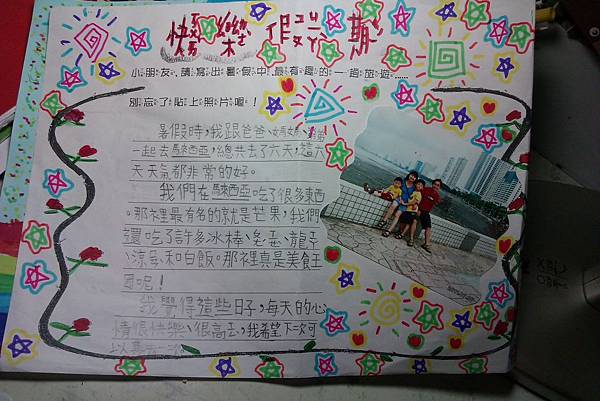 快樂假期
小朋友,請寫出暑假中最有趣的一趟旅遊……
別忘了貼上照片喔!
暑假時,我跟爸爸、媽媽、弟弟
一起去馬來西亞,總共去了六天,這六
天天氣都非常的好。
我們在馬來西亞吃了很多東西
。那裡最有名的就是芒果,我們
還吃了許多冰棒、
和白飯。那裡真是美食王
國呢!
我覺得這些日子,每天的心
情很快樂、很高
,我希望下次可
以
一次